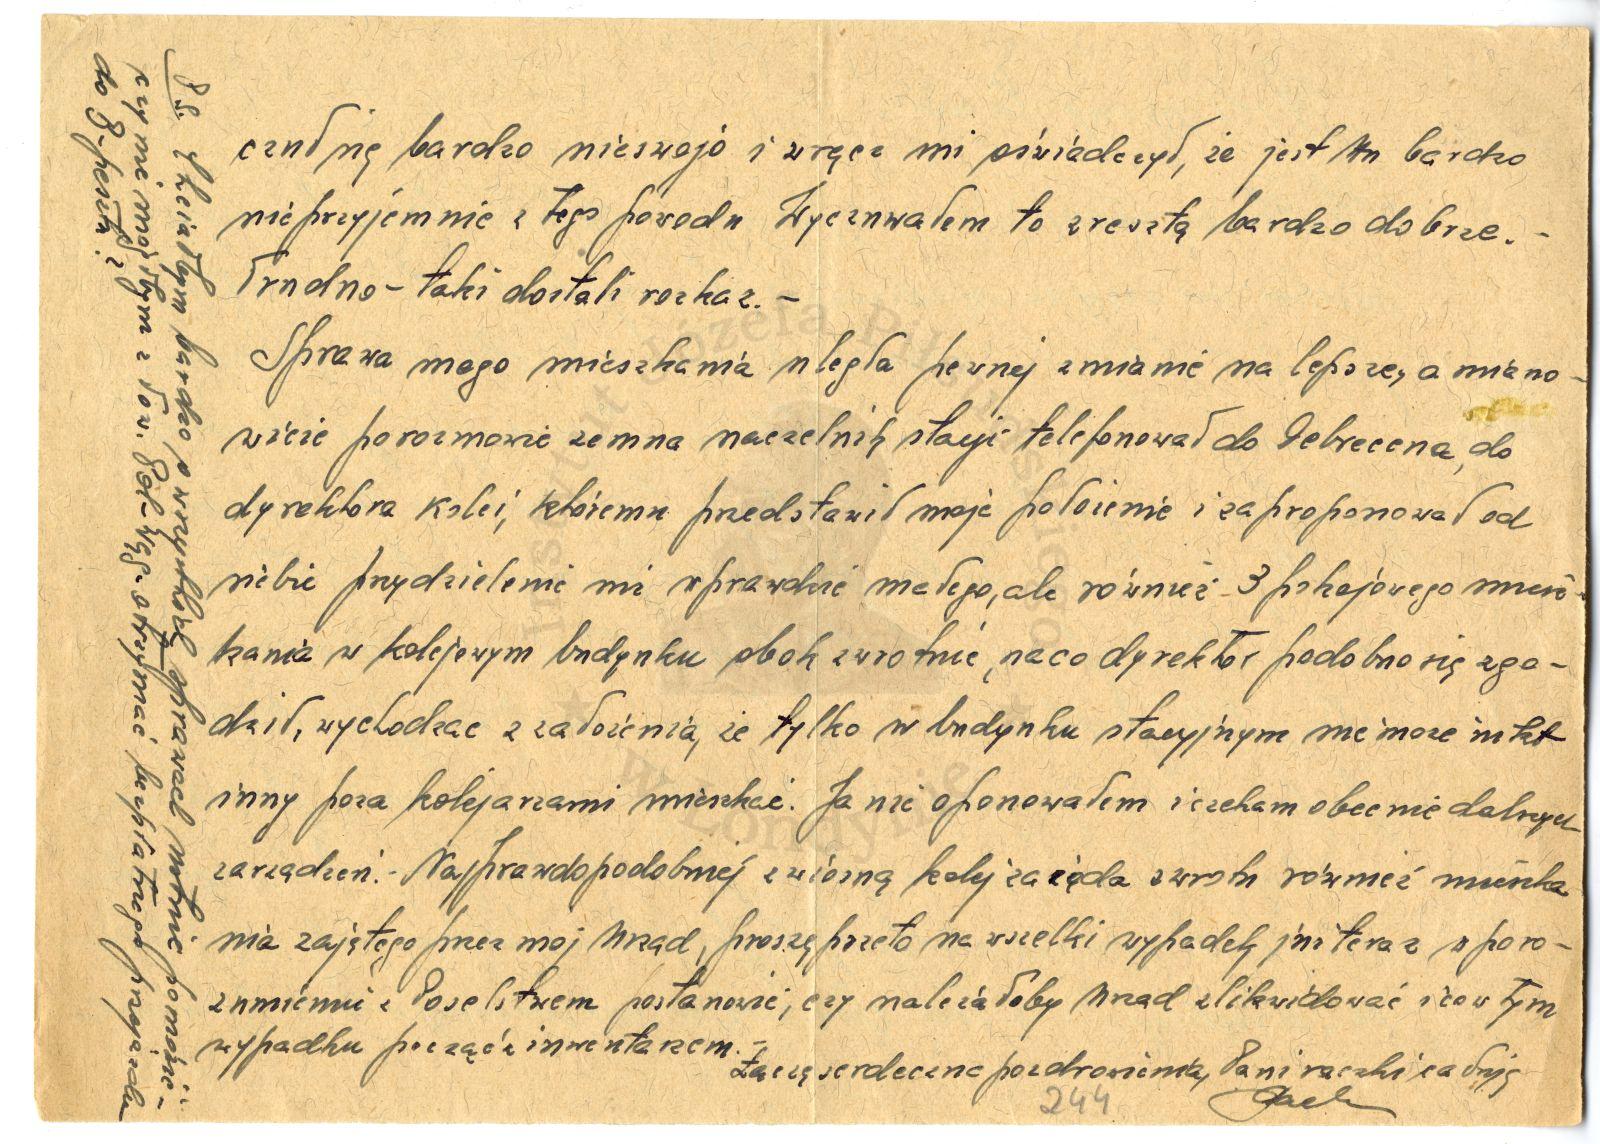 czuł się bardzo nieswojo i wręcz mi oświadczył, że jest mu bardzo
nieprzyjemnie z tego powodu Wyczuwałem to zresztą bardzo dobrze. -
Trudno - taki dostali rozkaz. -
Sprawa mego mieszkania uległa pewnej zmianie na lepsze, a miano-
wicie po rozmowie zemna naczelnik stacji telefonował do Debrecena, do
dyrektora kolei, któremu przedstawił moje położenie i zaproponował od
siebie przydzielenie mi wprawdzie małego, ale również 3 pokojowego miesz-
kania w kolejowym budynku obok zwrotnic, na co dyrektor podobno się zgo-
dził, wychodząc z założenia, że tylko w budynku stacyjnym nie może nikt
inny poza kolejarzami mieszkać. Ja nie oponowałem i czekam obecnie dalszych
zarządzeń. - Najprawdopodobniej z wiosną kolej zażąda zwrotu również mieszka
nia zajętego przez mój Urząd, proszę przeto na wszelki wypadek już teraz w poro-
zumieniu z Poselstwem postanowić, czy należałoby Urząd zlikwidować i co w tym
wypadku począć z inwentarzem. -
Łączę serdeczne pozdrowienia, Pani rączki całuję
244
Ps. Chciałbym bardzo w sprawach pomóc -
czy nie mógłbym z Tow. Pol-Węg. otrzymać bezpłatnego przejazdu
do B-pesztu?